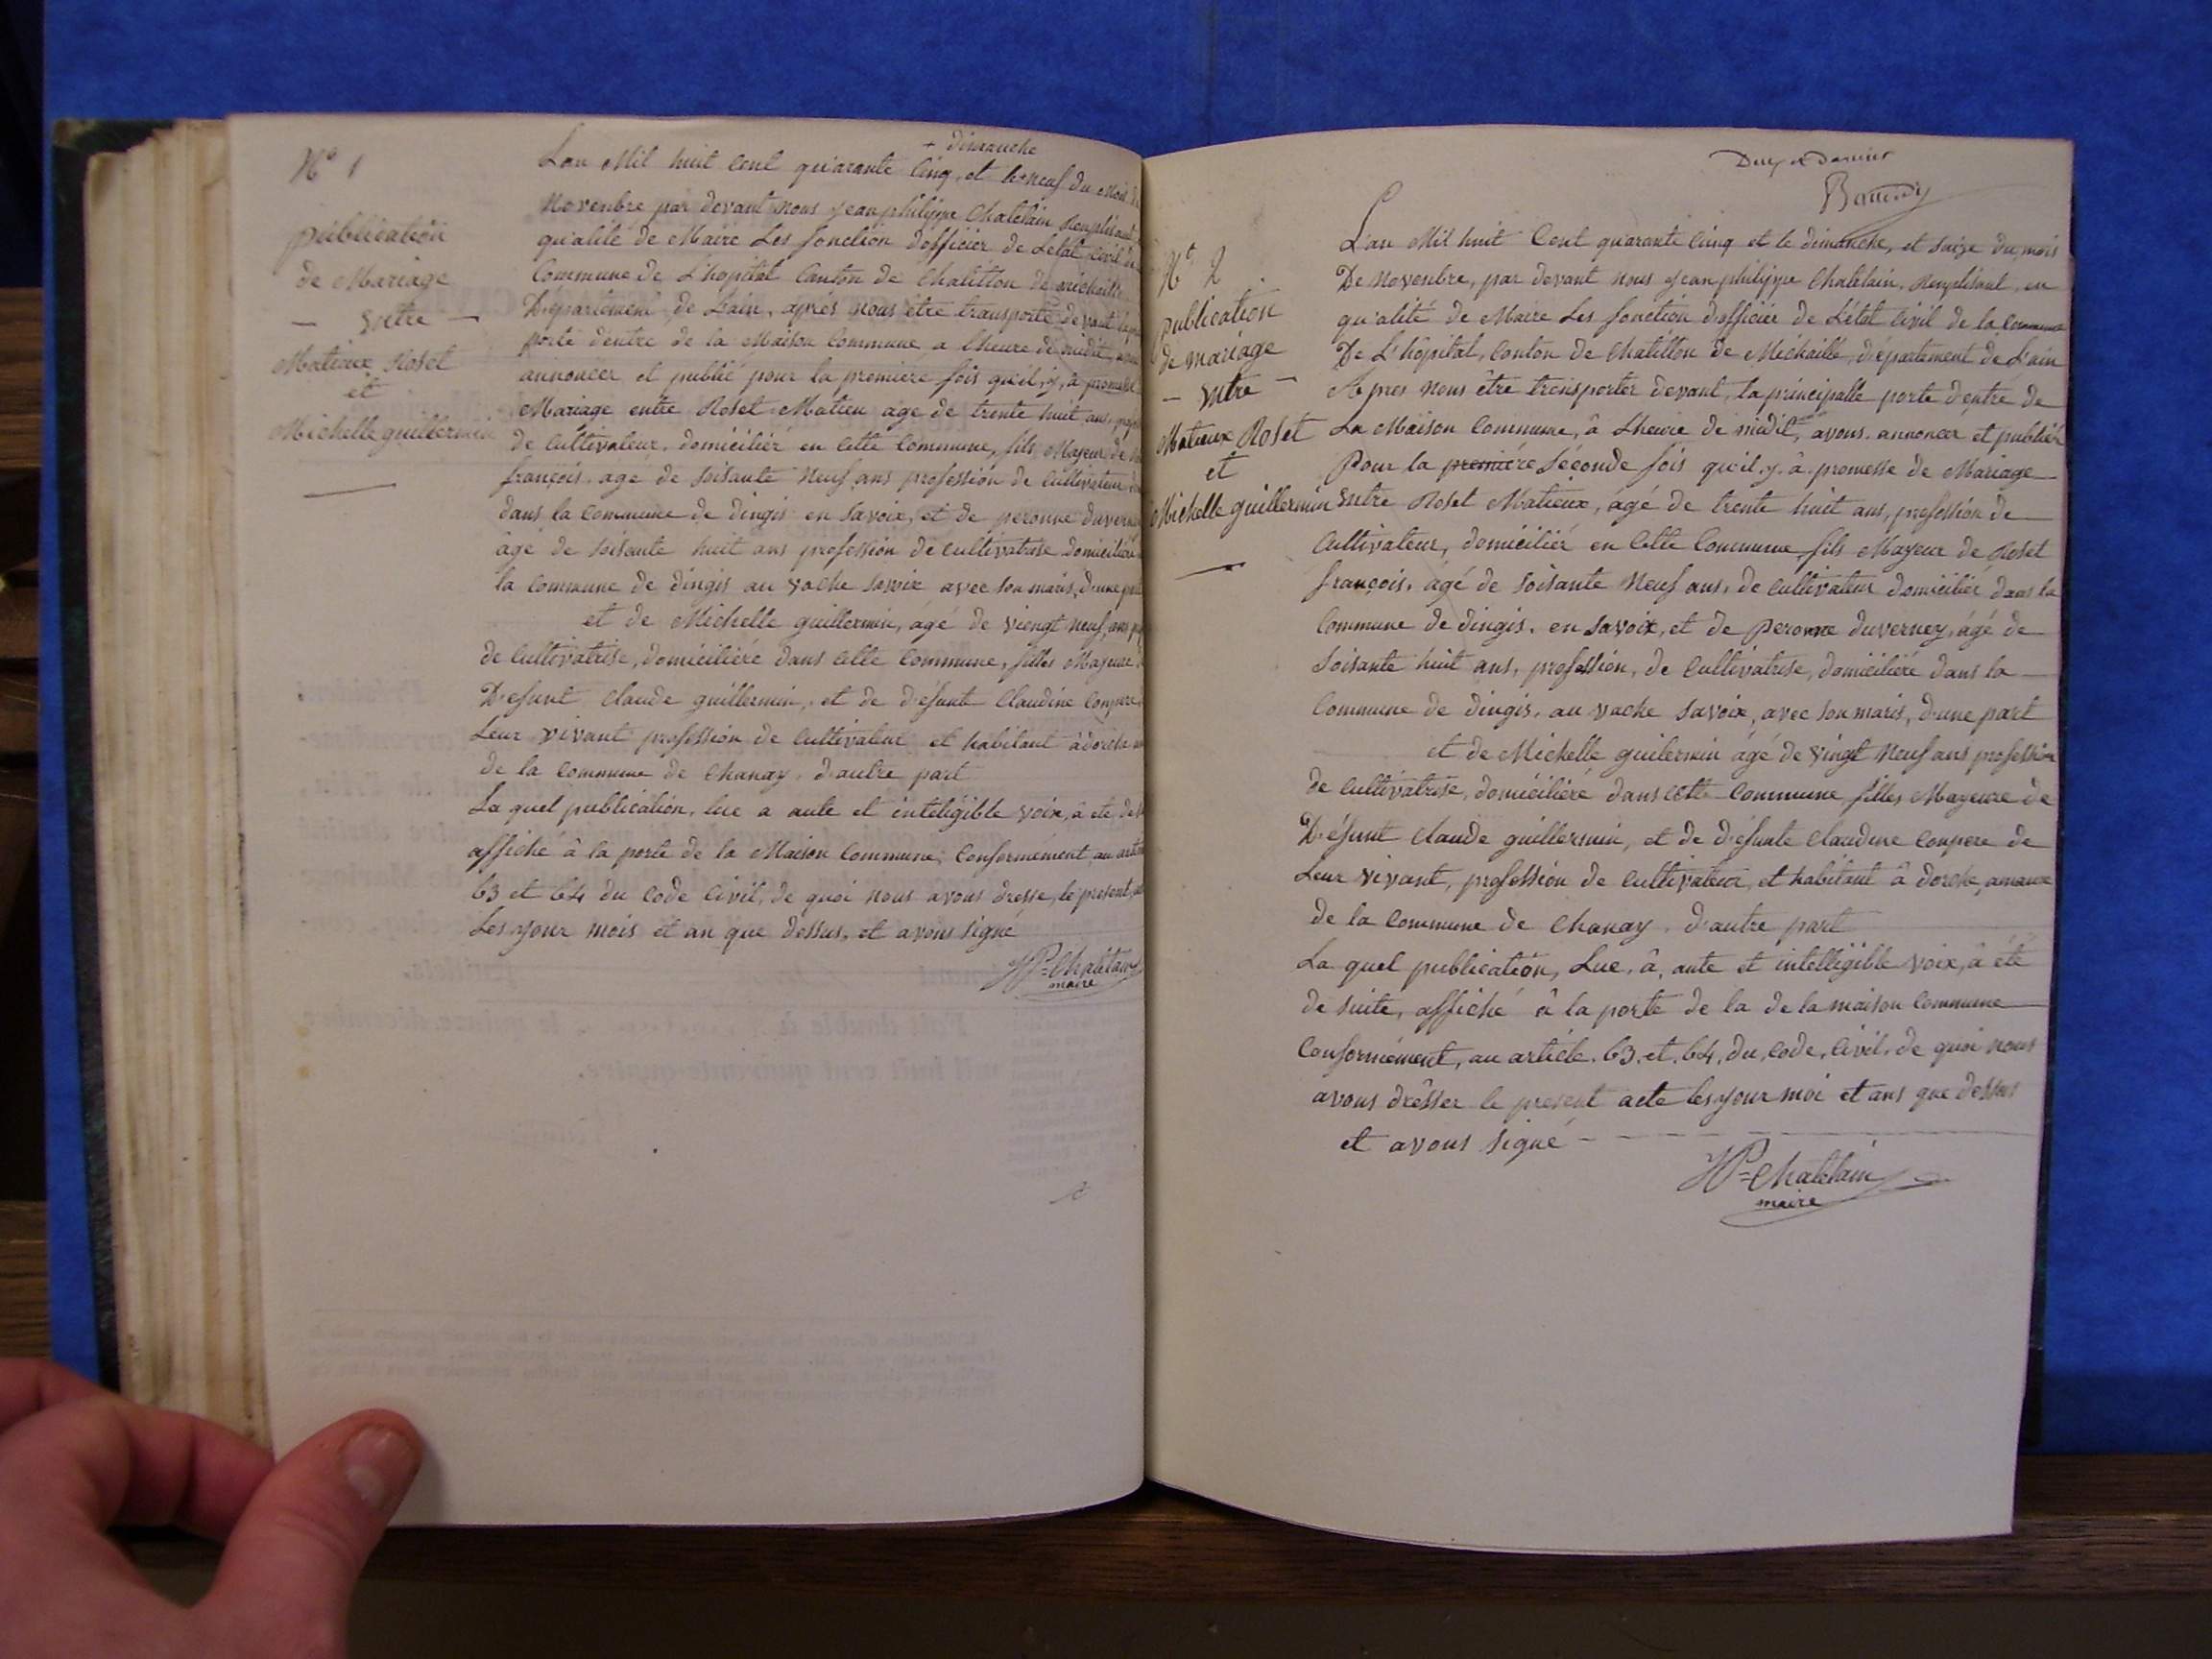 N° 1
publication
de Mariage
— entre —
Matieux Roset
et
Michelle guillermin
+ dimanche
L'an Mil huit Cent quarante Cinq, et le + neuf du Mois
Novembre par devant nous jean philippe Chatelain Remplisant
qu'alité de Maire Les fonction d'officier de L'état Civil
Commune de L'hopital Canton de Chatillon de michaille
Département de L'ain, après nous être transporté devant
porte d'entre de la Maison Commune a l'heure de midit,
annoncer et publié pour la premiere fois qu'il, y, à promesse
Mariage entre Roset Matieu age de trente huit ans,
de Cultivateur, domiciliér en Cette Commune, fils Majeur de
françois, agé de soisante Neuf ans profession de Cultivateur
dans la Commune de dingis en Savoix, et de peronne
âgé de soisente huit ans profession de cultivatrise domiciliére
la Commune de dingis au vache Savoix avec son maris, d'une
et de Michelle guillermin, âgé de viengt neuf, ans
de Cultivatrise, domiciliére dans Cette Commune, filles Majeure
D'efunt Claude guillermin, et de d'éfunte Claudine Compere
Leur vivant profession de Cultivateur et habitant à dorche
de la Commune de Chanay, d'autre part
La quel publication, lue a aute et inteligible voix, à été
affiché à la porte de la Maison Commune, Conformément au
63 et 64 du Code Civil, de quoi nous avons dresse, le present,
Les jour mois et an que dessus, et avons signé
JP=Chatelain
maire
Deux et dernier
N° 2
publication
de mariage
— entre —
Matieux Roset
et
Michelle guillermin
L'an Mil huit Cent quarante Cinq et le dimanche, et seize du mois
De novembre, par devant nous jean philippe Chatelain, Remplisant, en
qu'alité de Maire Les fonction d'officier de L'état Civil de la Commune
De L'hôpital, Canton de Chatillon de Michaille, département de L'ain
Apres nous être transporter devant, la principalle porte d'entre de
La Maison Commune, à L'heure de midit, avons, annoncer et publiér
Pour la premiére séconde fois qu'il, y, à promesse de Mariage
entre Roset Matieux, âgé de trente huit ans, profession de
Cultivateur, domiciliér en Cette Commune fils Mayeur de Roset
françois, âgé de soisante Neuf ans, de Cultivateur domiciliér dans la
Commune de dingis, en Savoix, et de Peronne duverney, âgé de
Soisante huit ans, profession, de Cultivatrise, domiciliére dans la
Commune de dingis, au vache Savoix, avec son maris, d'une part
et de Michelle guilermin âgé de vingt Neuf ans profession
de Cultivatrise, domiciliére dans cette Commune filles Mayeure de
D'éfunt Claude guillermin, et de d'éfunte Claudine Compere de
Leur vivant, profession de Cultivateur, et habitant à dorche, amaux
de la Commune de Chanay, d'autre part
La quel publication, Lue, à, aute et intelligible voix, à été
de suite, affiché à la porte de la de la maison Commune
Conformément, au article, 63, et, 64, du, Code, Civil, de quoi nous
avons drêsser le present acte les jour moi et ans que dessus
et avons signé
JP=Chatelain
maire